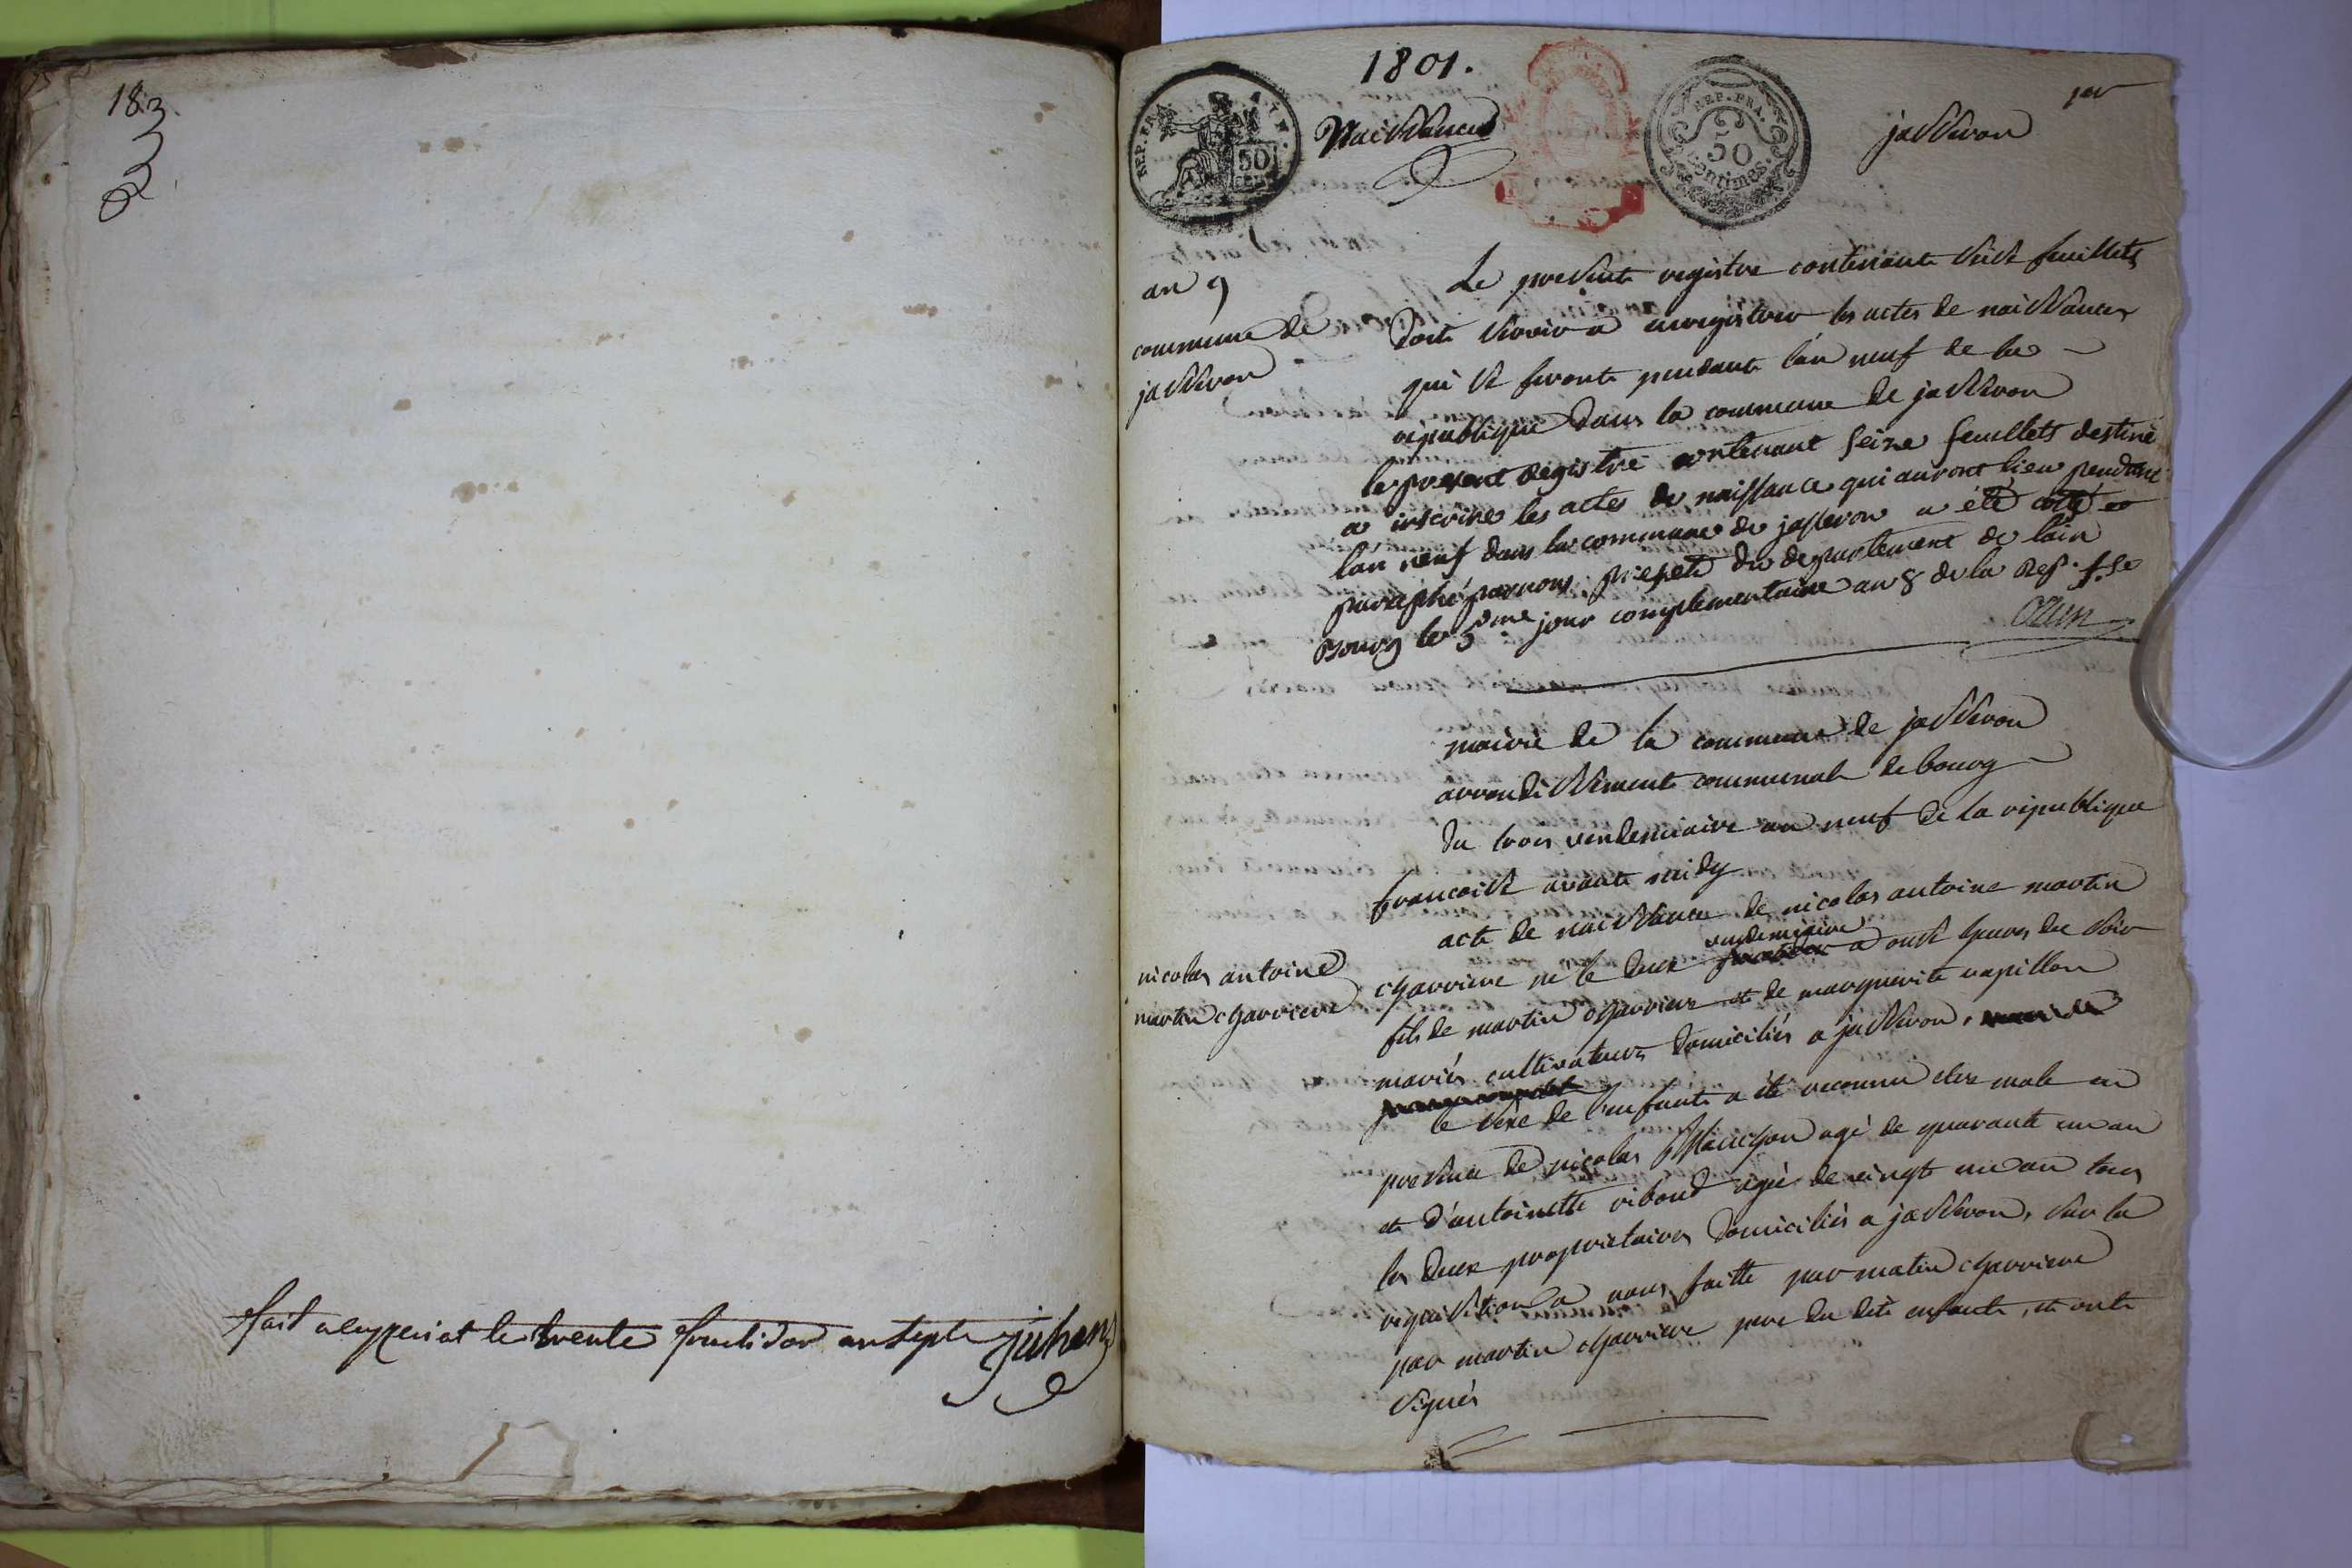 18.3
fait a ceyzeriat le trente fructidor an sept juhan
1801.
REP. FRA.
50
Naissances
REP. FRA.
50
Centimes.
jasseron
per
an 9
commune de
jasseron
Le presente registre contenante seist feuillets
doite servir a enregistrer les actes de naissances
qui se feronte pendante l'an neuf de la
republique dans la commune de jasseron
le present Registre contenant seize feuillets destiné
a inscrire les actes de naissance qui auront lieu pendant
l'an neuf dans la commune de jasseron a été coté et
paraphé par nous prefet du departement de l'ain
Bourg le 5eme jour complementaire an 8 de la Rep. f.se
Ozun
mairie de la commune de jasseron
arrondissemente communale de bourg
du trois vendemiaire an neuf de la republique
francoise avante midy
acte de naissance de nicolas antoine martin
vendemiaire
charriere né le deux fructidor a onse heures du soir
nicolas antoine
martin charriere
fils de martin charriere et de marguerite rapillon
mariés cultivateurs domiciliés a jasseron,
le sexe de l'enfante a été reconnu etre male en
presence de nicolas agé de quarante un an
et d'antoinette riboud agée de vingt un an tous
les deux proprietaires domiciliés a jasseron, sur la
requisition a nous faitte par matin charriere
par martin charriere pere du dite enfante, et onte
signés